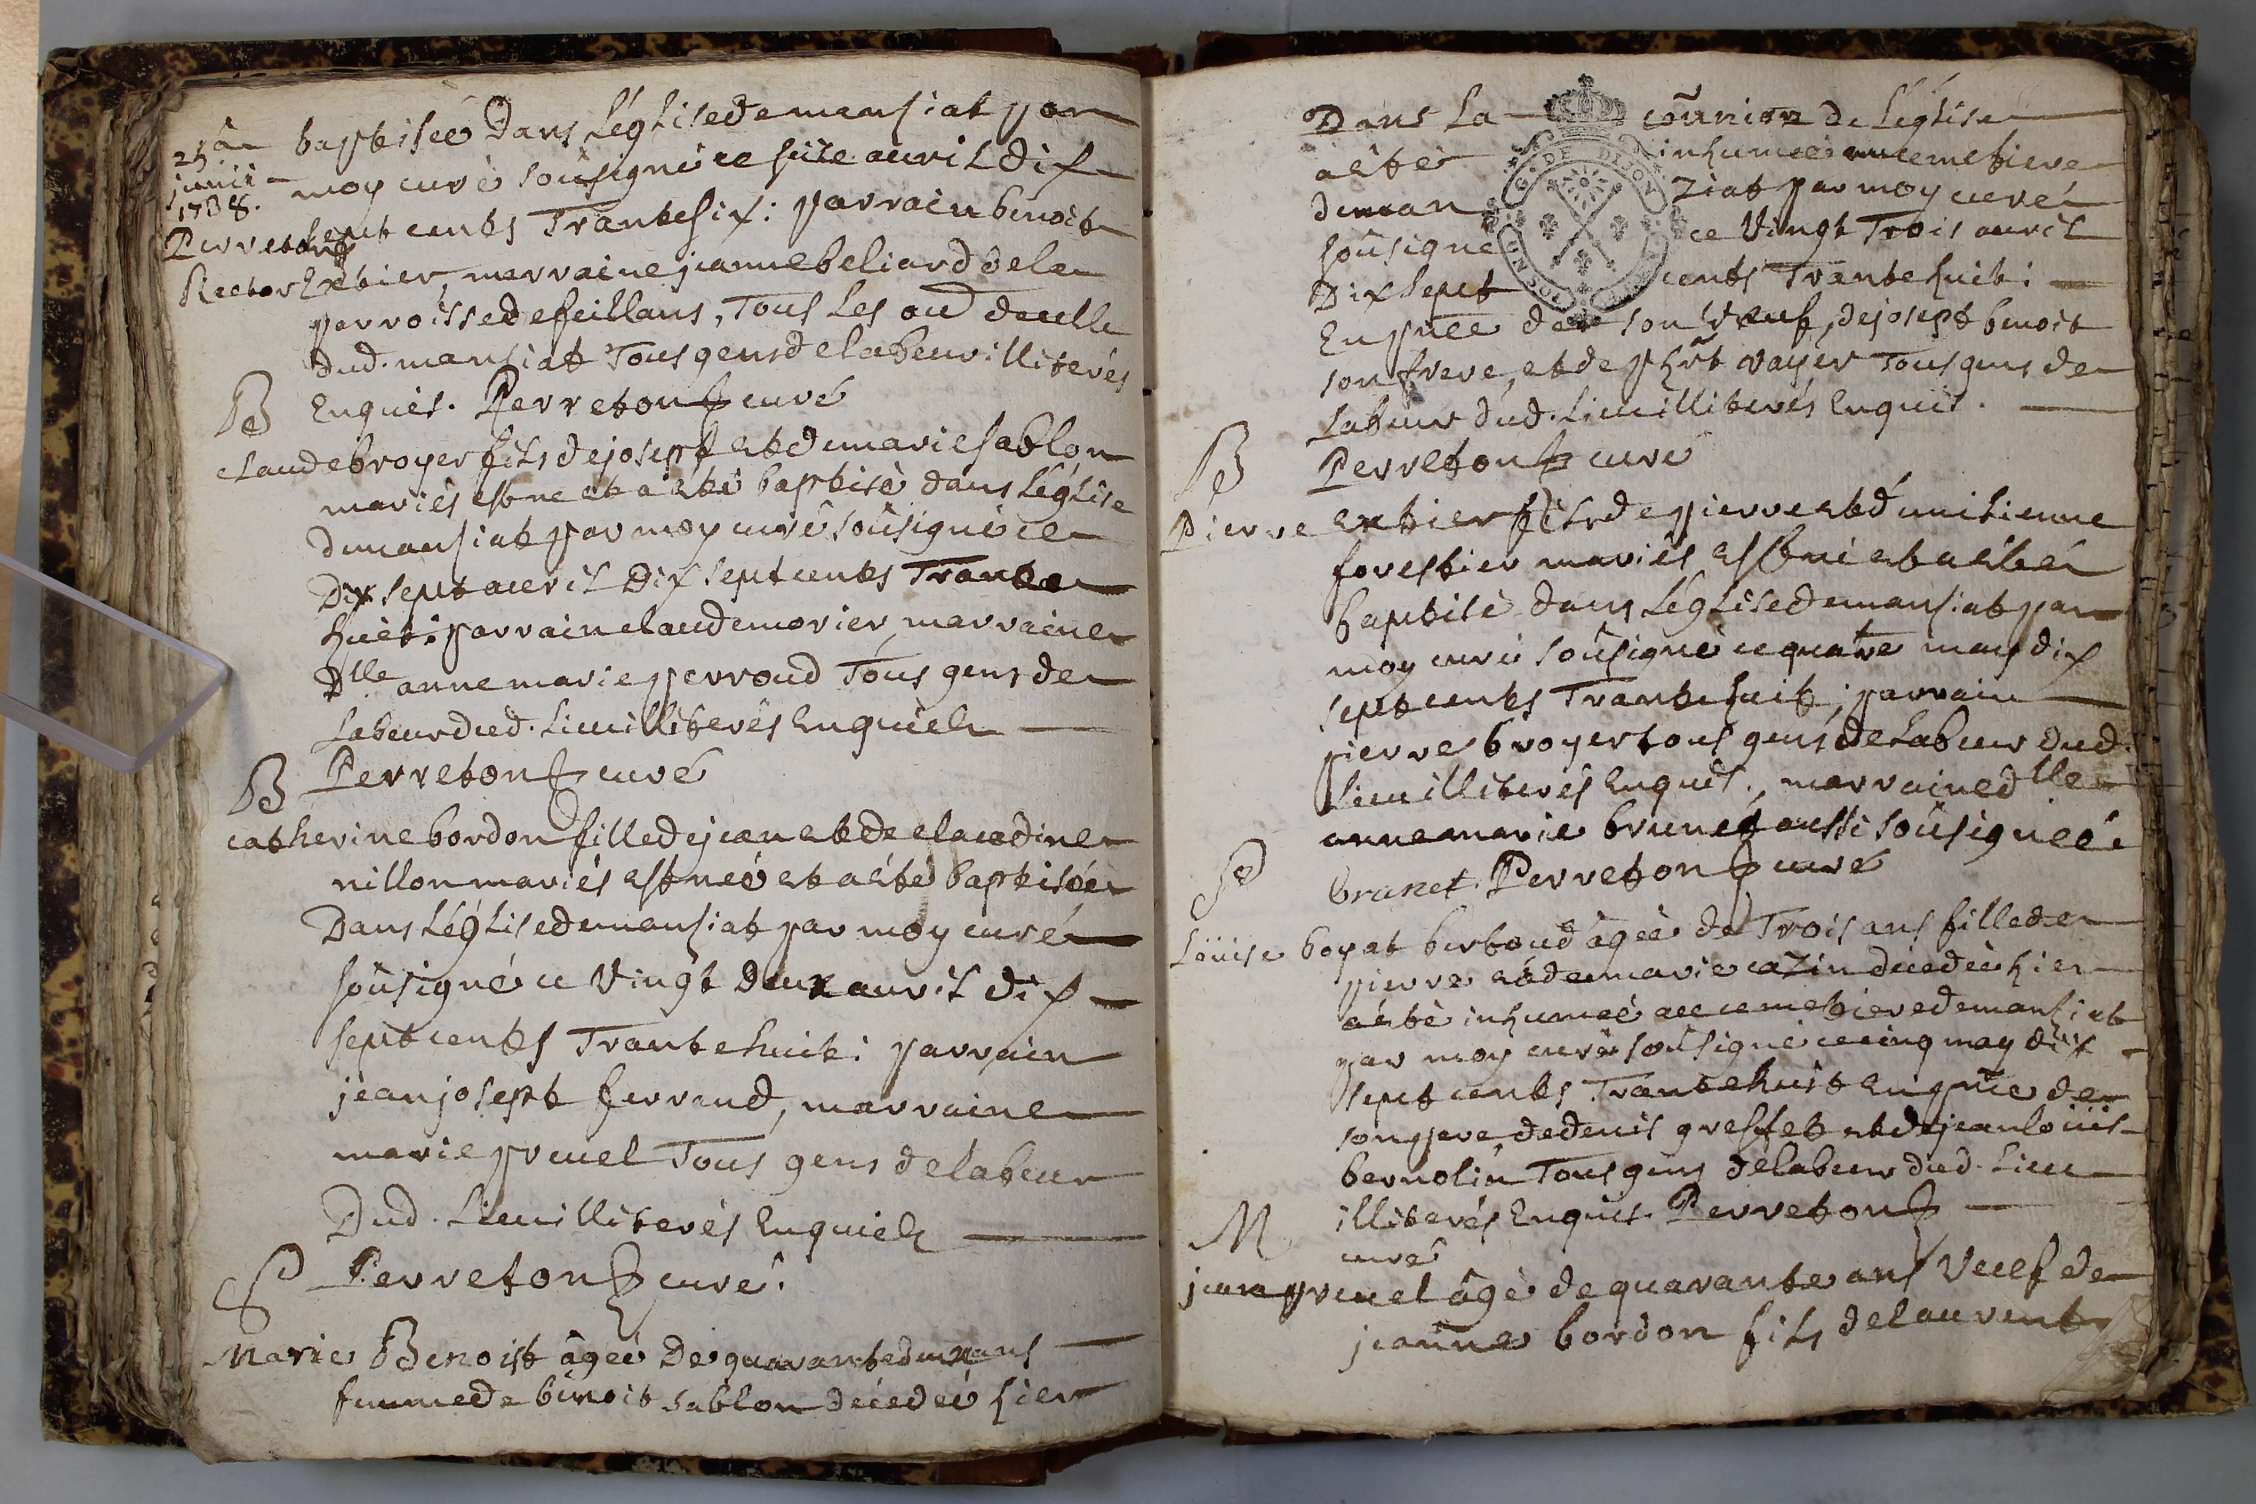 25a
junii
1738.
Perreton
Rector
baptisée dans Léglise de mansiat par
moy curé soûsigné ce seize avril dix
sept cents Trante six: parrain benoit
Exbier, marraine jeanne beliard de la
parroisse defeillans, Tous les
dud. mansiat Tous gens de labeur illiterés
Enquis. Perreton curé
B
claude broyer fils de josept et de marie sablon
mariés est ne et a esté baptisé dans Léglise
de mansiat par moy curé soûsigné ce
Dix sept avril Dix sept cents Trante
huit: parrain claude morier, marraine
Dlle anne marie perroud Tous gens de
Labeur dud. Lieu illiterés Enquis
Perreton curé
B
catherine bordon fille de jean et de claudine
nillon mariés est neé et a esté baptisée
Dans Léglise de mansiat par moy curé
soûsigné ce vingt Deux avril dix
sept cents Trante huit: parrain
jean josept ferrand, marraine
marie pruel Tous gens de labeur
Dud. Lieu illiterés Enquis
Perreton curé.
S
Marie Benoist âgée De quarante deux ans
femme de benoit sablon décedeé hier
DE DIJON
Dans La coṁunion de Léglise
a esté inhumeé au cemetiere
de man ziat par moy curé
soûsigné ce vingt Trois avril
Dix sept cents Trante huit:
En pñce de son veuf, de josept benoit
son frere, et de phrt vayer Tous gens de
Labeur dud. Lieu illiterés Enquis.
Perreton curé
B
Pierre exbier fils de pierre et d'emilienne
forestier mariés est né et a esté
baptisé dans Léglise de mansiat par
moy curé soûsigné ce quatre may dix
sept cents Trante huit; parrain
pierre broyer tous gens de Labeur dud.
Lieu illiterés Enquis., marraine dlle
anne marie brunet aussi soûsigneé
brunet. Perreton curé
S
Loüise boyat berboud âgeé de Trois ans fille de
pierre et de marie cazin décedeé hier
a esté inhumeé au cemetiere de mansiat
par moy curé soûsigné ce cinq may dix
sept cents Trante huit En pñce de
son pere, de denis greffet et de jean loüis
bernolin Tous gens de labeur dud. Lieu
illiterés Enquis. Perreton
curé
M
jean pruel âgé de quarante ans Veuf de
jeanne bordon fils de laurent